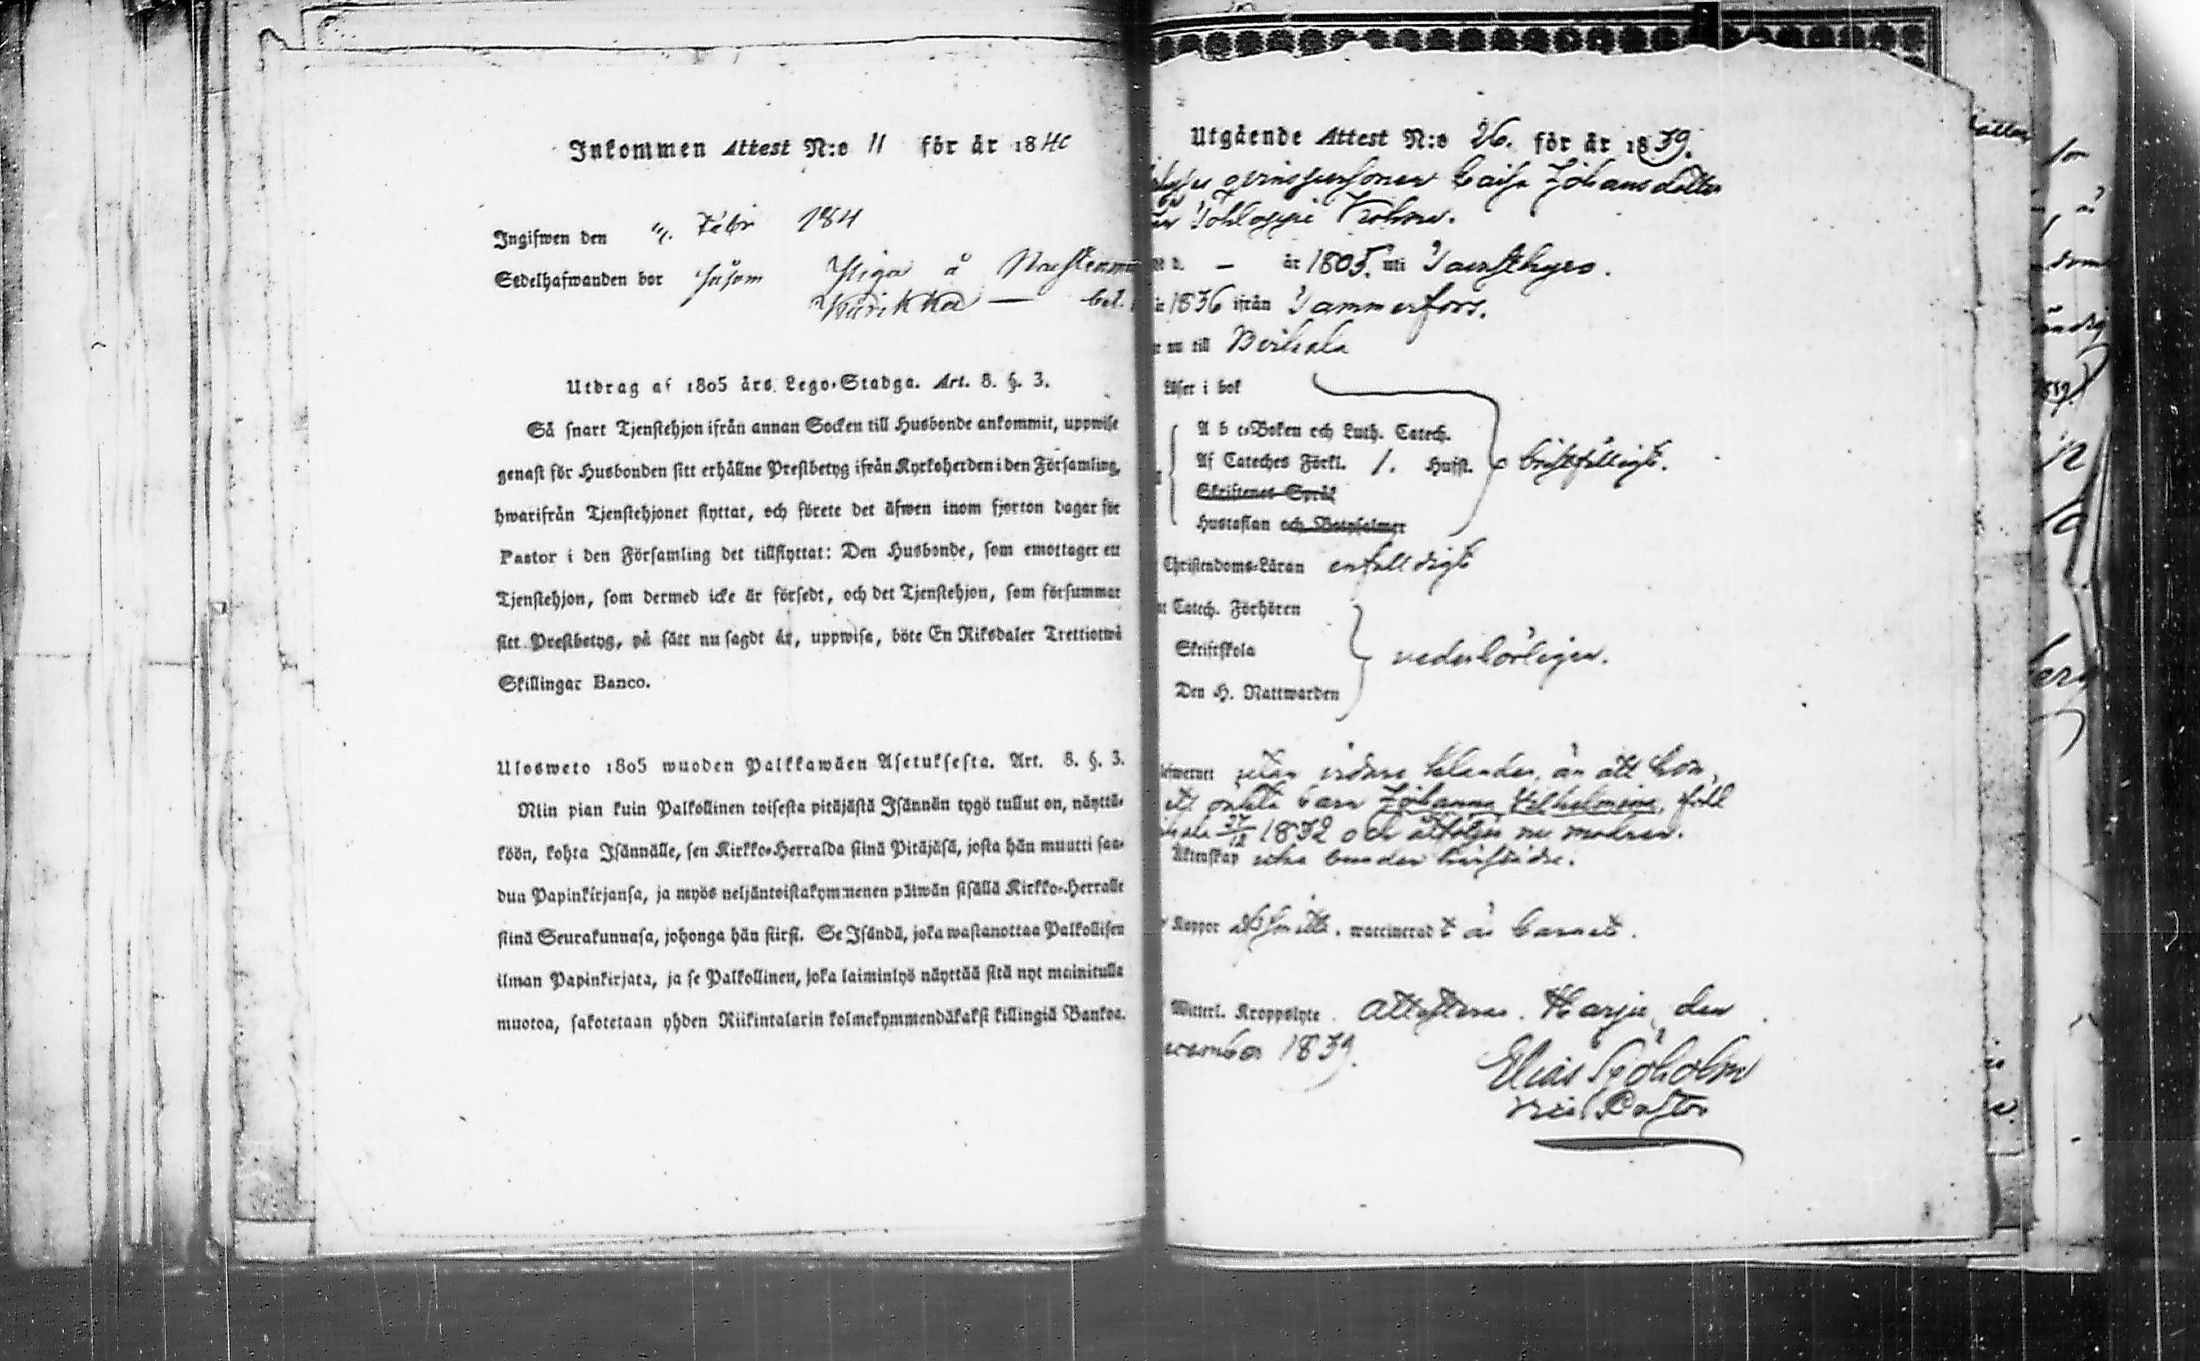 Inkommen Attest N:o 11 för år 1840
Ingifwen den Febr 184
Sedelhafwanden bor såsom Piga å
bet.
Utdrag af 1805 års Lego-Stadga. Art. 8. §. 3.
Så snart Tjenstehjon ifrån annan Socken till Husbonde ankommit, uppwise
genast för Husbonden sitt erhållne Prestbetyg ifrån Kyrkoherden i den Församling,
hwarifrån Tjenstehjonet flyttat, och förete det äfwen inom fjorton dagar för
Pastor i den Församling det tillflyttat: Den Husbonde, som emottager ett
Tjenstehjon, som dermed icke är försedt, och det Tjenstehjon, som försummar
sitt Prestbetyg, på sätt nu sagdt är, uppwisa, böte En Riksdaler Trettiotwå
Skillingar Banco.
Ulosweto 1805 wuoden Palkkawäen Asetuksesta. Art. 8. §. 3.
Niin pian kuin Palkollinen toisesta pitäjästä Isännän tygö tullut on, näyttä-
köön, kohta Isännälle, sen Kirkko-Herralda siinä Pitäjäsä, josta hän muutti saa-
dun Papinkirjansa, ja myös neljäntoistakymmenen päiwän sisällä Kirkko-Herralle
siinä Seurakunnasa, johonga hän siirsi. Se Isändä, joka wastanottaa Palkollisen
ilman Papinkirjata, ja se Palkollinen, joka laiminlyö näyttää sitä nyt mainitulla
muotoa, sakotetaan yhden Riikintalarin kolmekymmendäkaksi killingiä Bankoa.
Utgående Attest N:o 26. för år 1839.
qvinspersonen Caisa Johansdotter
Tohloppi
år 1805. uti Tavastkyro.
1836 ifrån Tammerfors.
nu till Birkala
Läser i bok
A b c-Boken och Luth. Catech.
Af Cateches Förkl. 1. Hufst. bristfälligt.
Skriftenes Språk
Hustaflan och Botpsalmer
Christendoms-Läran enfalldigt
Catech. Förhören
Skriftskola vederbörligen.
Den H. Nattwarden
utan vidare klander, än att hon,
ett oäkta barn Johanna Vilhelmina, född
27/12 1832 och åtföljer nu modren.
Äktenskap
Koppor waccinerad t är barnet.
Witterl. Kroppslyte. Attesteras. Harju den
December 1839.
Elias Sjöholm
Vice Pastor